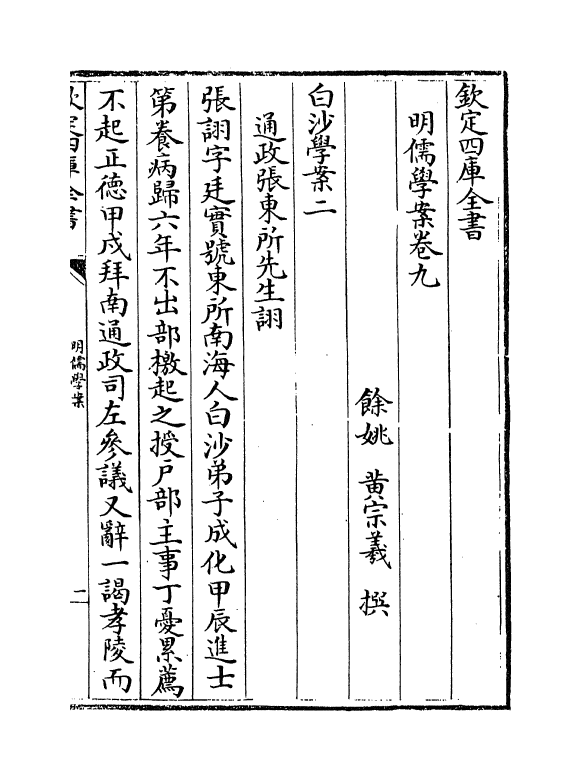 欽定四庫全書
明儒學案卷九
餘姚 黄宗羲 撰
白沙學案二
通政張東所先生詡
張詡字廷實號東所南海人白沙弟子成化甲辰進士
第養病歸六年不出部檄起之授户部主事丁憂累薦
不起正徳甲戌拜南通政司左參議又辭一謁孝陵而
欽定四庫全書
明儒學案